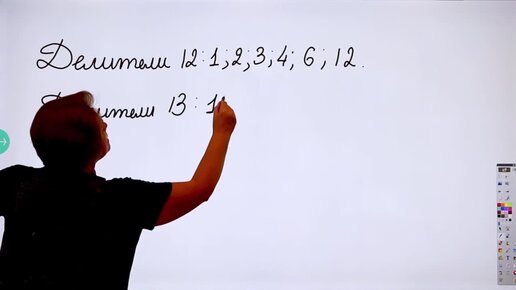 Делители 12 : 1 ; 2 ; 3 ; 4 ; 6 ; 12 .
13 : 1